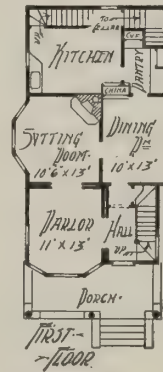 TO
CELLAR
UP
CUP.
KITCHEN
PANTRY
CHINA
SITTING
ROOM.
10'6" X 13'
DINING
R<sup>M</sup>
10' X 13'
PARLOR
11' X 13'
HALL
UP.
PORCH.
FIRST
FLOOR.